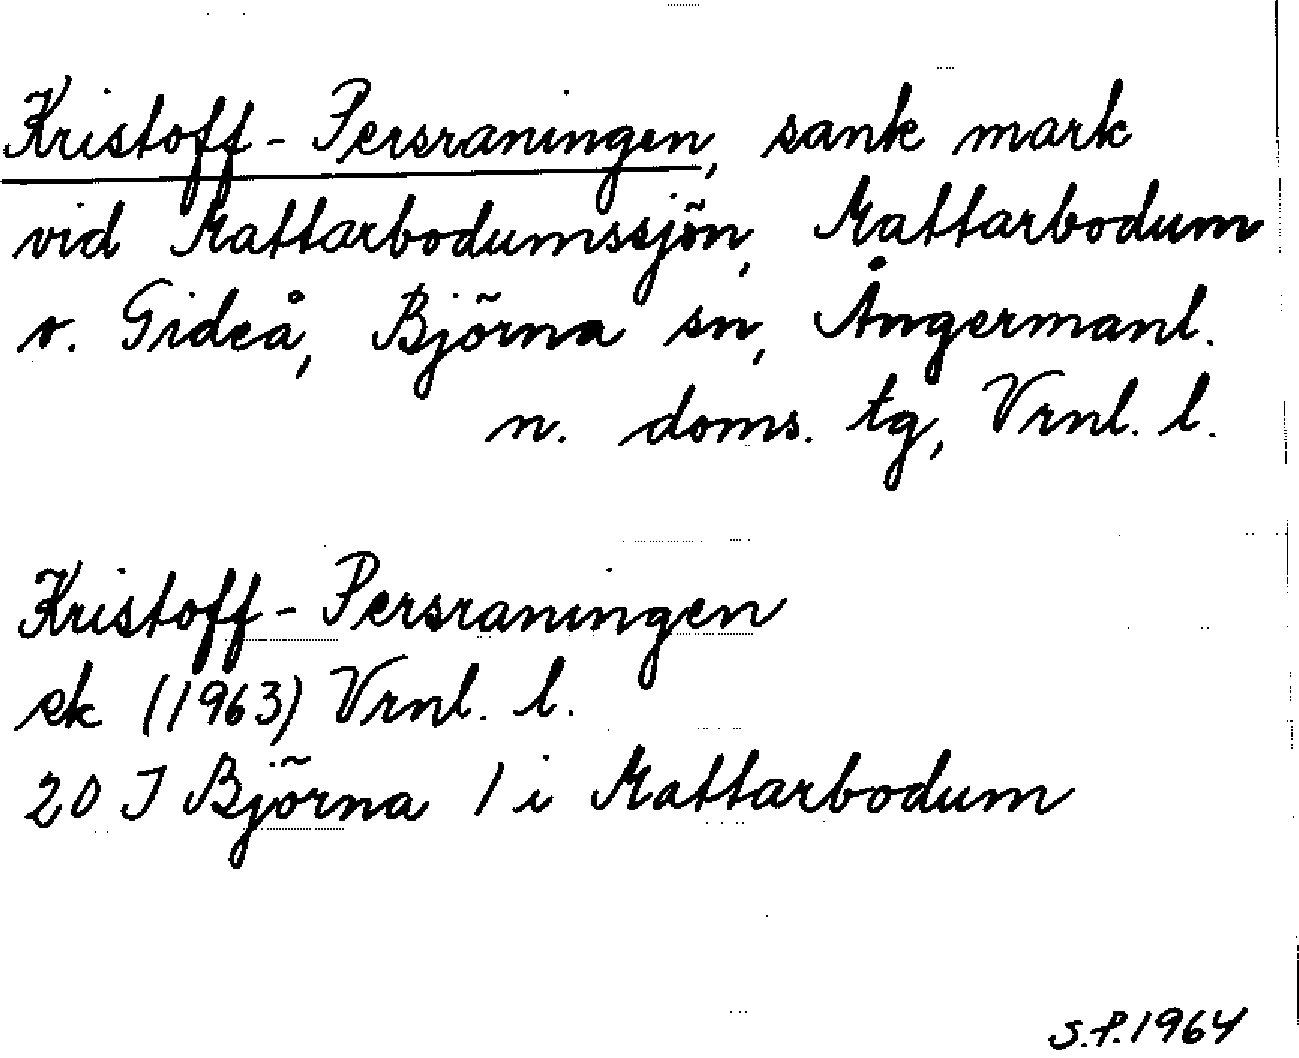 Kristoff-Persraningen, sank mark
vid Mattarbodumssjön, Mattarbodum
v. Gideå, Björna sn, Ångermanl.
n. doms. tg, Vrnl. l.
Kristoff-Persraningen
ek (1963) Vrnl. l.
20 I Björna 1 i Mattarbodum
S.P. 1964